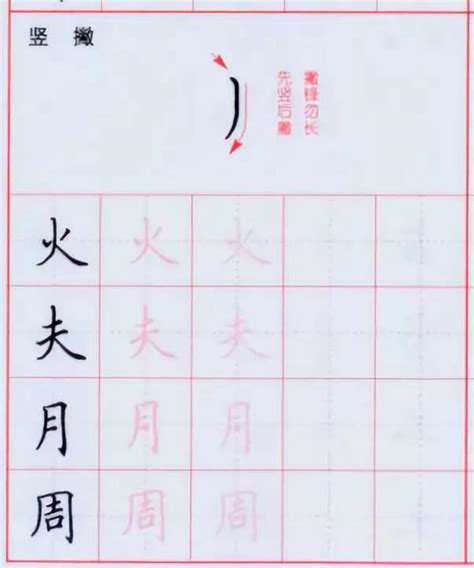 竖 撇
撇锋勿长
先竖后撇
火 火 火
夫 夫 夫
月 月 月
周 周 周